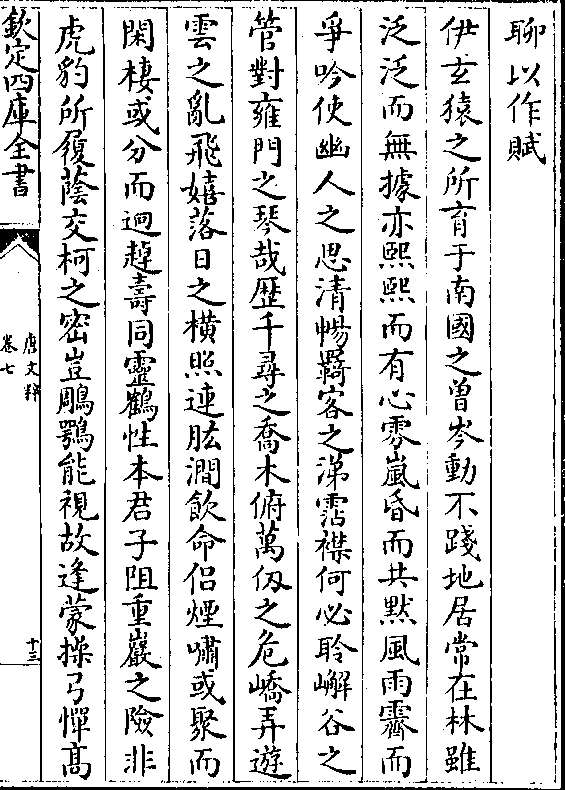 聊以作賦
伊玄猿之所育于南國之曾岑動不踐地居常在林雖
泛泛而無據亦熙熙而有心雰嵐昏而共默風雨霽而
爭吟使幽人之思清暢羇客之涕霑襟何必聆嶰谷之
管對雍門之琴哉歴千尋之喬木俯萬仭之危嶠弄遊
雲之亂飛嬉落日之橫照連肱澗飲命侣煙嘯或聚而
閑棲或分而迥趠壽同靈鶴性本君子阻重巖之險非
虎豹所履蔭交柯之密豈鵰鶚能視故逢蒙操弓憚髙
欽定四庫全書
唐文粹
卷七
十三